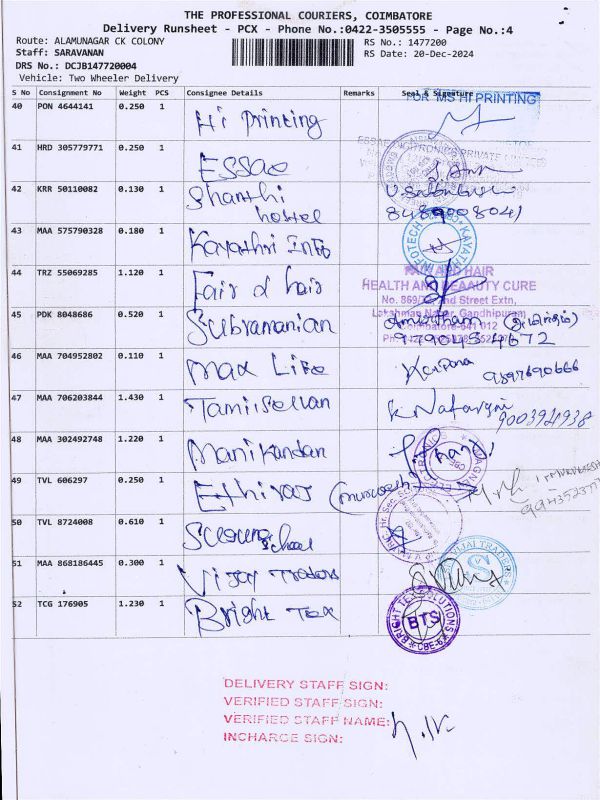 THE PROFESSIONAL COURIERS, COIMBATORE
Delivery Runsheet - PCX - Phone No.:0422-3505555 - Page No.:4
Route: ALAMUNAGAR CK COLONY
RS No.: 1477200
Staff: SARAVANAN
RS Date: 20-Dec-2024
DRS No.: DCJB147720004
Vehicle: Two Wheeler Delivery
S No Consignment No Weight PCS Consignee Details Remarks Seal & Signature
FOR MS HI PRINTING
40 PON 4644141 0.250 1 Hi Printing
41 HRD 305779771 0.250 1 ESSAE
PRIVATE LIMITED
42 KRR 50110082 0.130 1 Shanthi hostel
8489008041
43 MAA 575790328 0.180 1 Kayathri Info
INFOTECH KAYATHRI
44 TRZ 55069285 1.120 1 Fair & hair
FAIR AND HAIR
HEALTH AND BEAAUTY CURE
2nd Street Extn,
Lakshman Nagar, Gandhipuram
Coimbatore-641 012
45 PDK 8048686 0.520 1 Subramanian
Amirtham
46 MAA 704952802 0.110 1 Max Life
Kalpana
9897690666
47 MAA 706203844 1.430 1 Tamilselvan
K Natarajan
9003941938
48 MAA 302492748 1.220 1 Manikandan
49 TVL 606297 0.250 1 Ethiraj
50 TVL 8724008 0.610 1 Suguna School
51 MAA 868186445 0.300 1 Vijay Traders
VIJAI TRADERS
52 TCG 176905 1.230 1 Bright Tex
BRIGHT TEX SOLUTIONS
BTS
CBE-6
DELIVERY STAFF SIGN:
VERIFIED STAFF SIGN:
VERIFIED STAFF NAME:
INCHARGE SIGN: